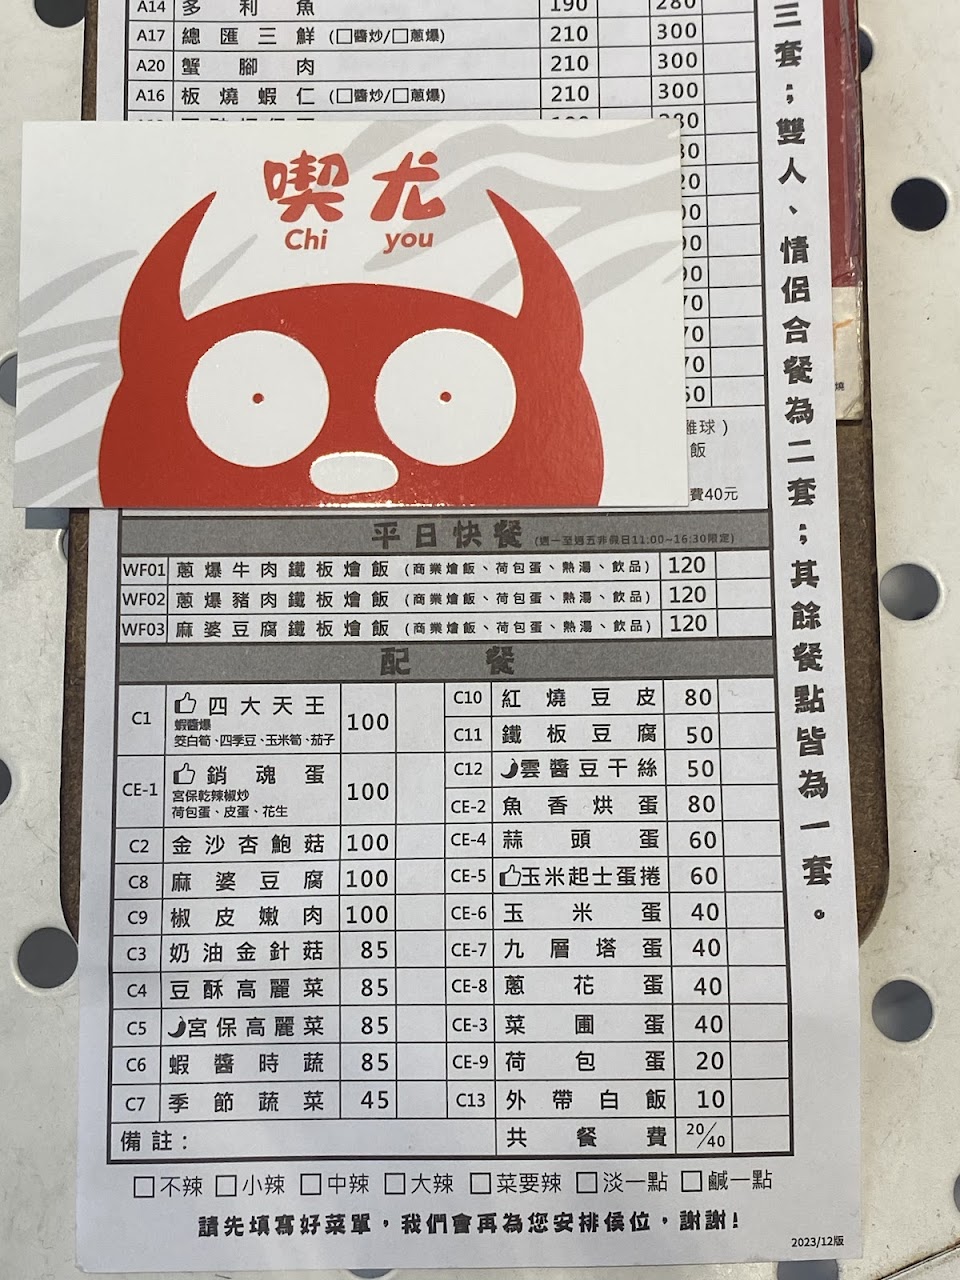 A14 多利魚 190 280
A17 總匯三鮮 (□醬炒/□蔥爆) 210 300
A20 蟹腳肉 210 300
A16 板燒蝦仁 (□醬炒/□蔥爆) 210 300
喫尤
Chi you
飯
費40元
平日快餐 (週一至週五非假日11:00~16:30限定)
WF01 蔥爆牛肉鐵板燴飯 (商業燴飯、荷包蛋、熱湯、飲品) 120
WF02 蔥爆豬肉鐵板燴飯 (商業燴飯、荷包蛋、熱湯、飲品) 120
WF03 麻婆豆腐鐵板燴飯 (商業燴飯、荷包蛋、熱湯、飲品) 120
配餐
C1 四大天王 100
蝦醬爆
茭白筍、四季豆、玉米筍、茄子
CE-1 銷魂蛋 100
宮保乾辣椒炒
荷包蛋、皮蛋、花生
C2 金沙杏鮑菇 100
C8 麻婆豆腐 100
C9 椒皮嫩肉 100
C3 奶油金針菇 85
C4 豆酥高麗菜 85
C5 宮保高麗菜 85
C6 蝦醬時蔬 85
C7 季節蔬菜 45
C10 紅燒豆皮 80
C11 鐵板豆腐 50
C12 雲醬豆干絲 50
CE-2 魚香烘蛋 80
CE-4 蒜頭蛋 60
CE-5 玉米起士蛋捲 60
CE-6 玉米蛋 40
CE-7 九層塔蛋 40
CE-8 蔥花蛋 40
CE-3 菜圃蛋 40
CE-9 荷包蛋 20
C13 外帶白飯 10
備註:
共餐費 20/40
□不辣 □小辣 □中辣 □大辣 □菜要辣 □淡一點 □鹹一點
請先填寫好菜單，我們會再為您安排侯位，謝謝!
2023/12版
三套；雙人、情侶合餐為二套；其餘餐點皆為一套。